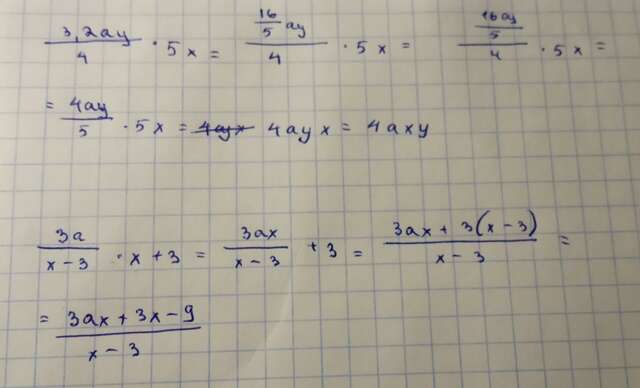 3,2ay/4 · 5x = (16/5 ay)/4 · 5x = (16ay/5)/4 · 5x =
= 4ay/5 · 5x = 4ayx 4ayx = 4axy
3a/(x-3) · x+3 = 3ax/(x-3) +3 = (3ax+3(x-3))/(x-3) =
= (3ax+3x-9)/(x-3)